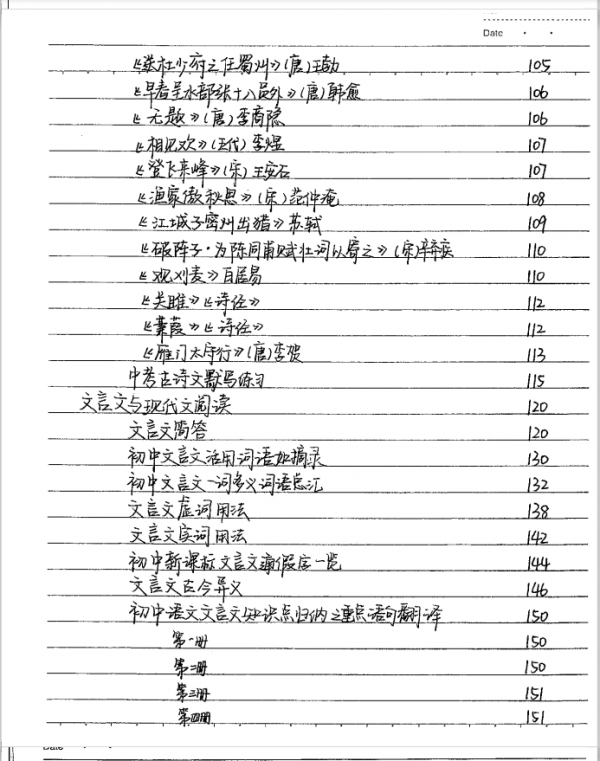 Date · ·
《送杜少府之任蜀州》(唐)王勃 105
《早春呈水部张十八员外》(唐)韩愈 106
《无题》(唐)李商隐 106
《相见欢》(五代)李煜 107
《登飞来峰》(宋)王安石 107
《渔家傲秋思》(宋)范仲淹 108
《江城子密州出猎》苏轼 109
《破阵子·为陈同甫赋壮词以寄之》(宋)辛弃疾 110
《观刈麦》白居易 110
《关雎》《诗经》 112
《蒹葭》《诗经》 112
《雁门太守行》(唐)李贺 113
中考古诗文默写练习 115
文言文与现代文阅读 120
文言文简答 120
初中文言文活用词语如摘录 130
初中文言文一词多义词语总汇 132
文言文虚词用法 138
文言文实词用法 142
初中新课标文言文通假字一览 144
文言文古今异义 146
初中语文文言文知识点归纳之重点语句翻译 150
第一册 150
第二册 150
第三册 151
第四册 151
Date · ·